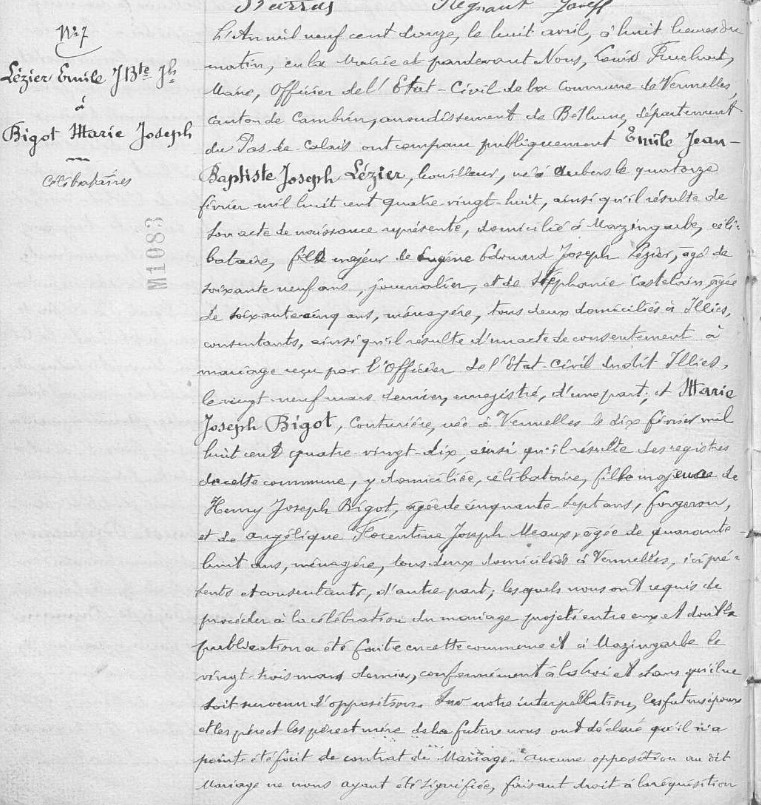 Nº 7
Lézier Emile J Bte Jh
à
Bigot Marie Joseph
Célibataires
M1083
Joseph
L'An mil neuf cent douze, le huit avril, à huit heures du
matin, en la Mairie et pardevant Nous, Louis
Maire, Officier de l'Etat-Civil de la Commune de Vermelles,
canton de Cambrin, arrondissement de Béthune, département
du Pas de Calais ont comparu publiquement Emile Jean-
Baptiste Joseph Lézier, houilleur, né à Aubers le quatorze
février mil huit cent quatre vingt-huit, ainsi qu'il résulte de
son acte de naissance représenté, domicilié à Mazingarbe, céli-
bataire, fils majeur de Eugène Edouard Joseph Lézier, âgé de
soixante neuf ans, journalier, et de Stéphanie Castelain, âgée
de soixante cinq ans, ménagère, tous deux domiciliés à Illies,
consentants, ainsi qu'il résulte d'un acte de consentement à
mariage reçu par l'Officier de l'Etat-civil dudit Illies,
le vingt neuf mars dernier, enregistré, d'une part; et Marie
Joseph Bigot, Couturière, née à Vermelles le dix février mil
huit cent quatre vingt dix, ainsi qu'il résulte des registres
de cette commune, y domiciliée, célibataire, fille majeure de
Henry Joseph Bigot, âgé de cinquante sept ans, forgeron,
et de Angélique Florentine Joseph Meaux, âgée de quarante
huit ans, ménagère, tous deux domiciliés à Vermelles, ici pré-
sents et consentants, d'autre part; lesquels nous ont requis de
procéder à la célébration du mariage projeté entre eux et dont la
publication a été faite en cette commune et à Mazingarbe le
vingt trois mars dernier, conformément à la loi et sans qu'il ne
soit survenu d'opposition. Sur notre interpellation, les futurs époux
et les père et les père et mère de la future nous ont déclaré qu'il n'a
point été fait de contrat de Mariage. aucune opposition au dit
Mariage ne nous ayant été signifiée, faisant droit à la réquisition